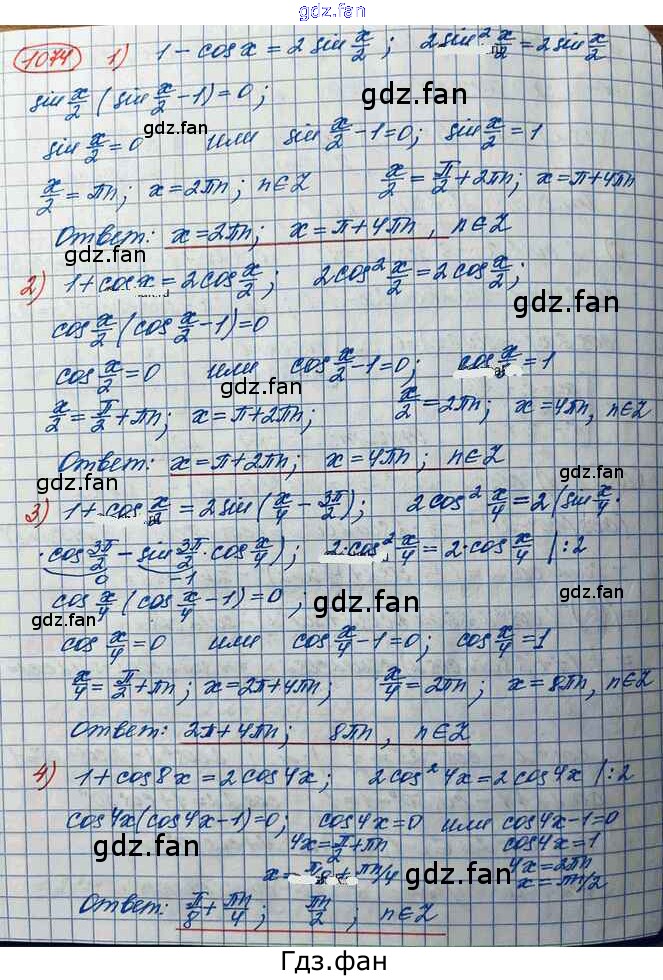 gdz.fan
1074 1) 1 - cos x = 2 sin x/2 ; 2 sin² x/2 = 2 sin x/2
sin x/2 (sin x/2 - 1) = 0 ;
sin x/2 = 0 или sin x/2 - 1 = 0; sin x/2 = 1
x/2 = πn; x = 2πn; n∈Z x/2 = π/2 + 2πn; x = π + 4πn
Ответ: x = 2πn; x = π + 4πn , n∈Z
2) 1 + cos x = 2 cos x/2 ; 2 cos² x/2 = 2 cos x/2 ;
cos x/2 (cos x/2 - 1) = 0
cos x/2 = 0 или cos x/2 - 1 = 0; cos x/2 = 1
x/2 = π/2 + πn; x = π + 2πn; x/2 = 2πn; x = 4πn, n∈Z
Ответ: x = π + 2πn; x = 4πn; n∈Z
3) 1 + cos x/2 = 2 sin (x/4 - 3π/2); 2 cos² x/4 = 2 (sin x/4 ·
· cos 3π/2 - sin 3π/2 · cos x/4); 2 · cos² x/4 = 2 · cos x/4 | :2
0 -1
cos x/4 (cos x/4 - 1) = 0 ;
cos x/4 = 0 или cos x/4 - 1 = 0; cos x/4 = 1
x/4 = π/2 + πn; x = 2π + 4πn; x/4 = 2πn; x = 8πn, n∈Z
Ответ: 2π + 4πn; 8πn, n∈Z
4) 1 + cos 8x = 2 cos 4x; 2 cos² 4x = 2 cos 4x | :2
cos 4x (cos 4x - 1) = 0; cos 4x = 0 или cos 4x - 1 = 0
4x = π/2 + πn cos 4x = 1
x = π/8 + πn/4 4x = 2πn
x = πn/2
Ответ: π/8 + πn/4 ; πn/2 ; n∈Z
Гдз.фан